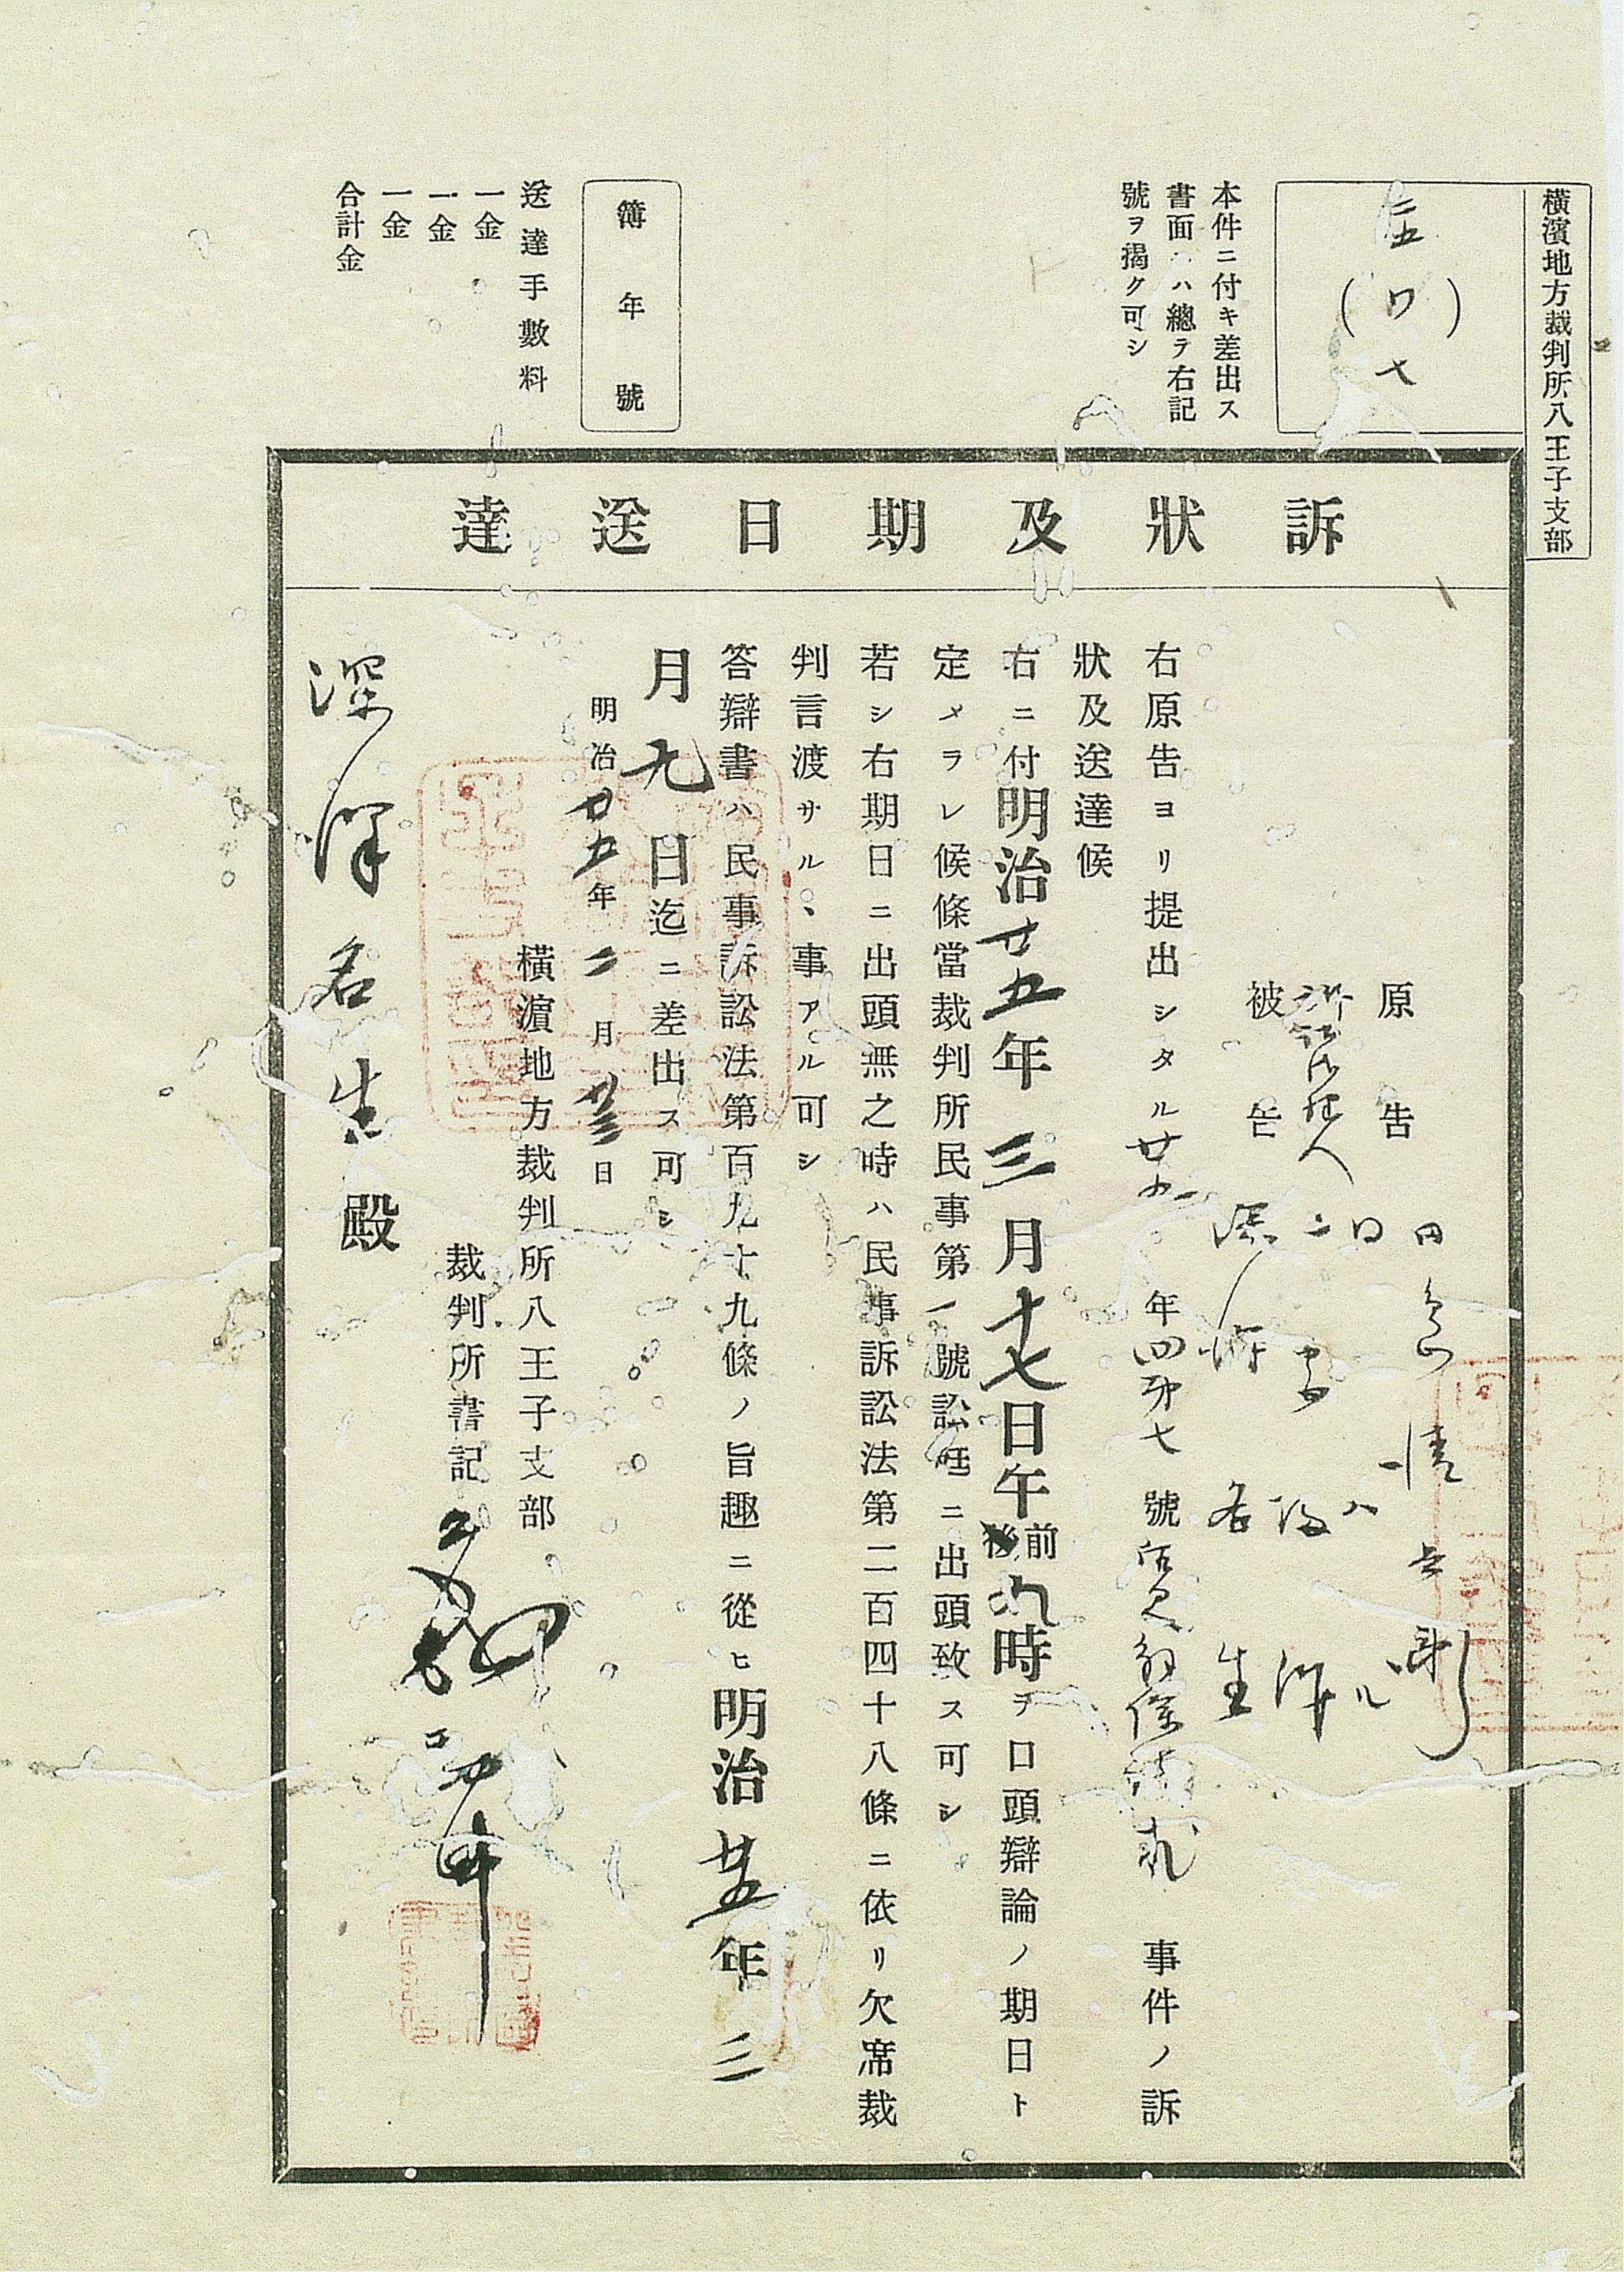 横濱地方裁判所八王子支部
五
(ワ)
七
本件ニ付キ差出ス
書面ハ總テ右記
號ヲ揭ク可シ
簿年號
送達手數料
一金
一金
一金
合計金
訴狀及期日送達
原告
訴訟代理人
被告 深澤名生
右原告ヨリ提出シタル廿五年 第七號 事件ノ訴
狀及送達候
右ニ付明治廿五年三月十七日午前後九時ヲ口頭辯論ノ期日ト
定メラレ候條當裁判所民事第一號訟廷ニ出頭致ス可シ
若シ右期日ニ出頭無之時ハ民事訴訟法第二百四十八條ニ依リ欠席裁
判言渡サルヽ事アル可シ
答辯書ハ民事訴訟法第百九十九條ノ旨趣ニ從ヒ明治廿五年三
月九日迄ニ差出ス可シ
明治廿五年二月廿三日
横濱地方裁判所八王子支部
裁判所書記
深澤名生殿